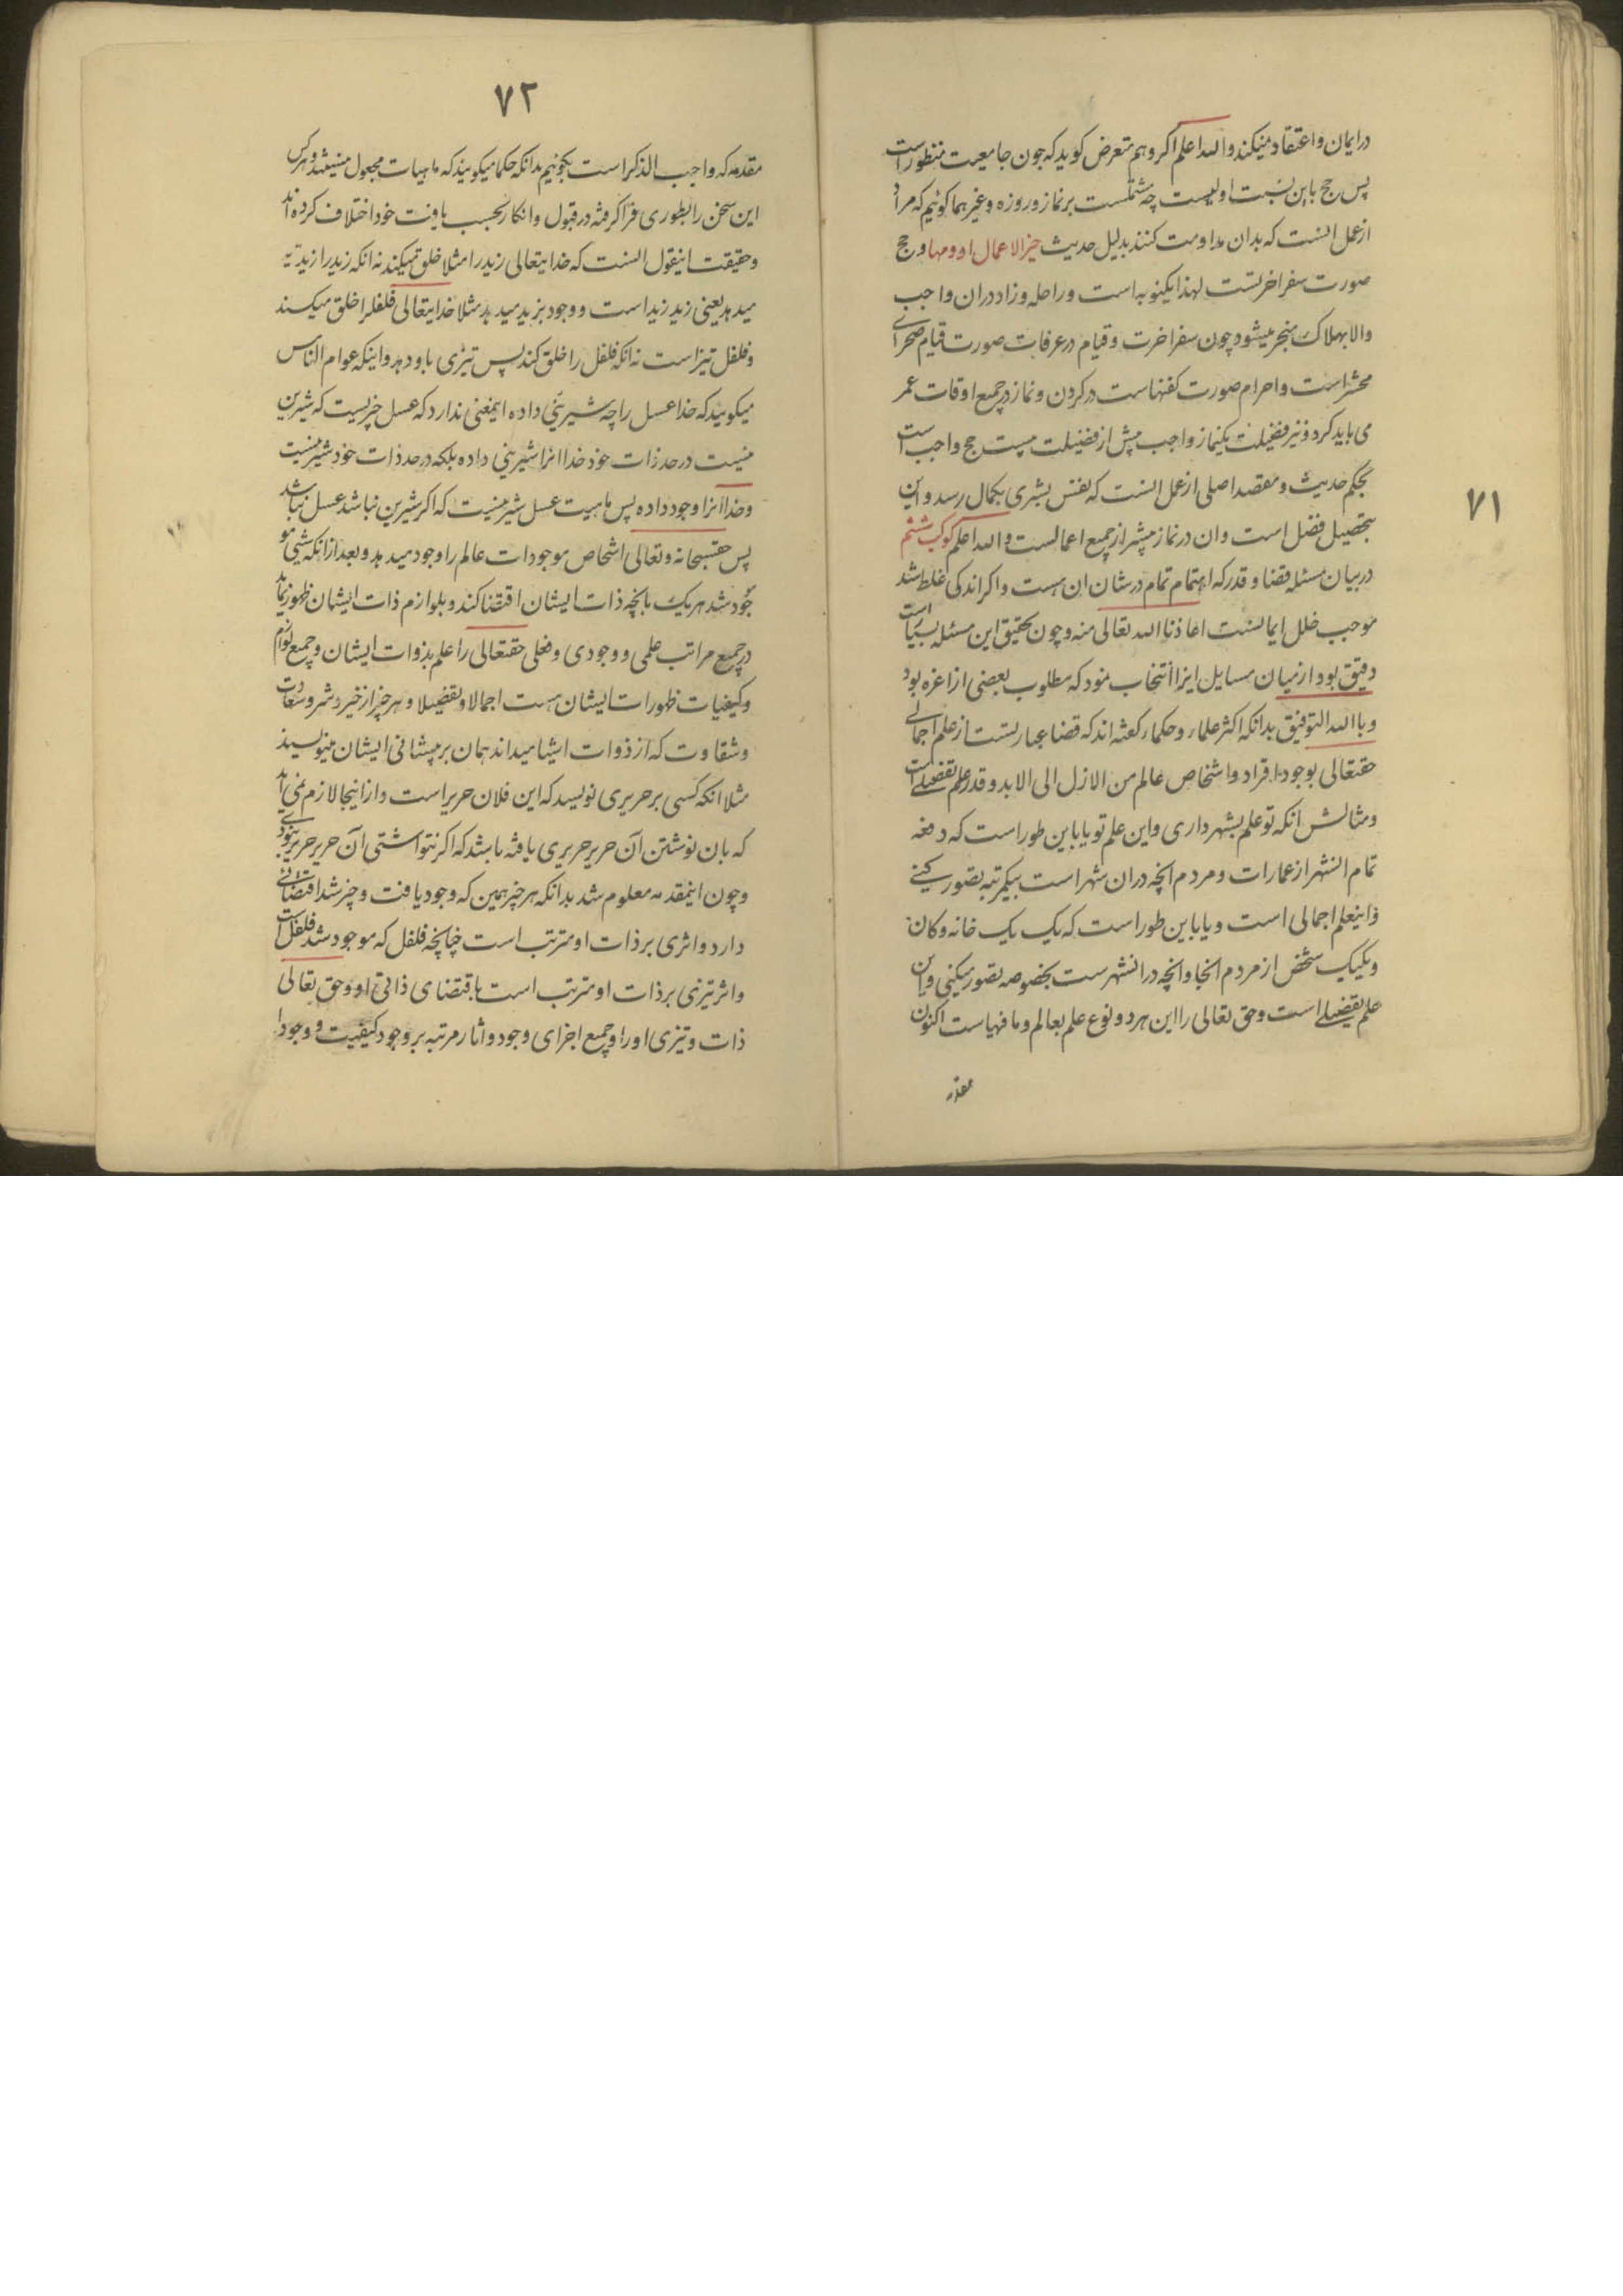 ۷۱
در ایمان و اعتقاد میکند والله اعلم اکر وهم تعرض کوید که چون جامعیت منظور است
پس حج باین نسبت اولیست چه مشتملست بر نماز و روزه و غیرهما کوئیم که مراد
از عمل انست که بدان مداومت کنند بدلیل حدیث خیر الاعمال ادومها و حج
صورت سفر اخرتست لهذا یکنوبه است و راحله و زاد دران واجب
والا بهلاک منجر میشود چون سفر اخرت و قیام در عرفات صورت قیام صحرای
محشر است و احرام صورت کفنهاست در کردن و نماز در جمیع اوقات عمر
می باید کرد و نیز فضیلت یکنماز واجب بیش از فضیلت بیست حج واجب است
بحکم حدیث و مقصد اصلی از عمل انست که نفس بشری بکمال رسد و این
بتحصیل فضل است و ان در نماز بیشتر از جمیع اعمالست والله اعلم کوکب ششم
در بیان مسئله قضا و قدر که اهتمام تمام در شان ان هست و اکر اندکی غلط شد
موجب خلل ایمانست اعاذنا الله تعالی منه و چون تحقیق این مسئله بسیار است
دقیق بود از میان مسایل اینرا انتخاب نمود که مطلوب بعضی از اعزه بود
وبالله التوفیق بدانکه اکثر علماء و حکماء کفته اند که قضا عبارتست از علم اجمالی
حقتعالی بوجود افراد و اشخاص عالم من الازل الی الابد و قدر علم تفصیلی است
و مثالش انکه تو علم بشهر داری و این علم تو یا باین طور است که دفعه
تمام انشهر از عمارات و مردم انچه دران شهر است بیکمرتبه تصور کنی
و اینعلم اجمالی است و یا باین طور است که یک یک خانه و کان
و یکیک شخص از مردم انجا و انچه در انشهرست بخصوصه تصور میکنی و این
علم تفصیلی است و حق تعالی را این هر دو نوع علم بعالم و ما فیها است اکنون
۷۲
مقدمه که واجب الذکر است بکوئیم بدانکه حکما میکویند که ماهیات مجعول نیستند و هر کس
این سخن را بطوری فرا کرفته در قبول و انکار بحسب یافت خود اختلاف کرده اند
و حقیقت اینقول انست که خدایتعالی زید را مثلا خلق میکند نه انکه زید را زیدیه
میدهد یعنی زید زید است و وجود بزید میدهد مثلا خدایتعالی فلفل را خلق میکند
و فلفل تیز است نه انکه فلفل را خلق کند پس تیزی باو دهد و اینکه عوام الناس
میکویند که خدا عسل را چه شیرینی داده اینمعنی ندارد که عسل چیزیست که شیرین
نیست در حد ذات خود خدا انرا شیرینی داده بلکه در حد ذات خود شیرینیست
و خدا انرا وجود داده پس ماهیت عسل شیرینیست که اکر شیرین نباشد عسل نباشد
پس حقسبحانه و تعالی اشخاص موجودات عالم را وجود میدهد و بعد از انکه شیئی مو
جود شد هر یک بانچه ذات ایشان اقتضا کند و بلوازم ذات ایشان ظهور نماید
در جمیع مراتب علمی و وجودی و فعلی حقتعالی را علم بذوات ایشان و جمیع لوازم
و کیفیات ظهورات ایشان هست اجمالا و تفصیلا و هر چیز از خیر و شر و سعادت
و شقاوت که از ذوات ایشا میداند همان بر پیشانی ایشان مینویسد
مثلا انکه کسی بر حریری نویسد که این فلان حریر است و از اینجا لازم نمی اید
که بان نوشتن آن حریر حریری یافته باشد که اکر ننواشتی آن حریر حریر نبودی
و چون اینمقدمه معلوم شد بدانکه هر چیز همین که وجود یافت و چیز شد اقتضائی
دارد و اثری بر ذات او مترتب است چنانچه فلفل که موجود شد فلفل است
و اثر تیزی بر ذات او مترتب است باقتضای ذاتی او و حق تعالی
ذات و تیزی او را و جمیع اجزای وجود و اثار مرتبه بر وجود کیفیت و وجود